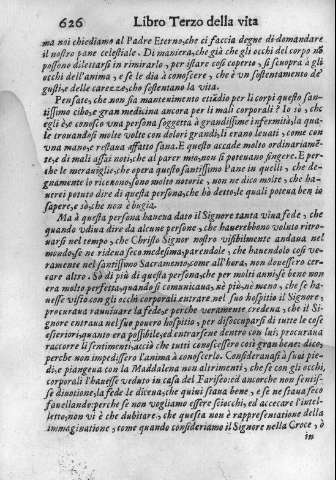 626 Libro Terzo della vita
ma noi chiediamo al Padre Eterno, che ci faccia degne di domandare
il nostro pane celestiale. Di maniera, che già che gli occhi del corpo nõ
possono dilettarsi in rimirarlo, per istare così coperto, si scuopra à gli
occhi dell'anima, e se le dia à conoscere, che è vn sostentamento de'
gusti, e delle carezze, che sostentano la vita.
Pensate, che non sia mantenimento etiãdio per li corpi questo san-
tissimo cibo, e gran medicina ancora per li mali corporali? Io sò, che
egli è; e conosco vna persona soggetta à grandissime infermità, la qua-
le trouandosi molte volte con dolori grandi, li erano leuati, come con
vna mano, e restaua affatto sana. E questo accade molto ordinariamē-
te, di mali assai noti, che al parer mio, non si poteuano fingere. E per-
che le merauiglie, che opera questo santissimo Pane in quelli, che de-
gnamente lo riceuono, sono molto notorie, non ne dico molte, che ha-
uerei potuto dire di questa persona, che hò detto, le quali poteua ben io
sapere, e sò, che non è bugia.
Ma à questa persona haueua dato il Signore tanta viua fede, che
quando vdiua dire da alcune persone, che hauerebbono voluto ritro-
uarsi nel tempo, che Christo Signor nostro visibilmente andaua nel
mondo, se ne rideua seco medesima, parendole, che hauendolo così ve-
ramente nel santissimo Sacramento, come all'hora, non douessero cer-
care altro. Sò di più di questa persona, che per molti anni, se bene non
era molto perfetta, quando si comunicaua, nè più, nè meno, che se ha-
uesse visto con gli occhi corporali entrare nel suo hospitio il Signore,
procuraua rauuiuare la fede, e perche veramente credeua, che il Si-
gnore entraua nel suo pouero hospitio, per disoccuparsi di tutte le cose
esteriori, quanto era possibile, ed entrarsene dentro con lui; procuraua
raccorre li sentimenti, acciò che tutti conoscessero così gran bene: dico,
perche non impedissero l'anima à conoscerlo. Considerauasi à' suoi pie-
di, e piangeua con la Maddalena non altrimenti, che se con gli occhi
corporali l'hauesse veduto in casa del Fariseo: ed ancorche non sentis-
se diuotione, la fede le diceua, che quiui staua bene, e se ne staua seco
fauellando: perche se non vogliamo essere sciocchi, ed acceccare l'intel-
letto, non vi è che dubitare, che questa non è rappresentatione della
immaginatione, come quando consideriamo il Signore nella Croce, ò
in